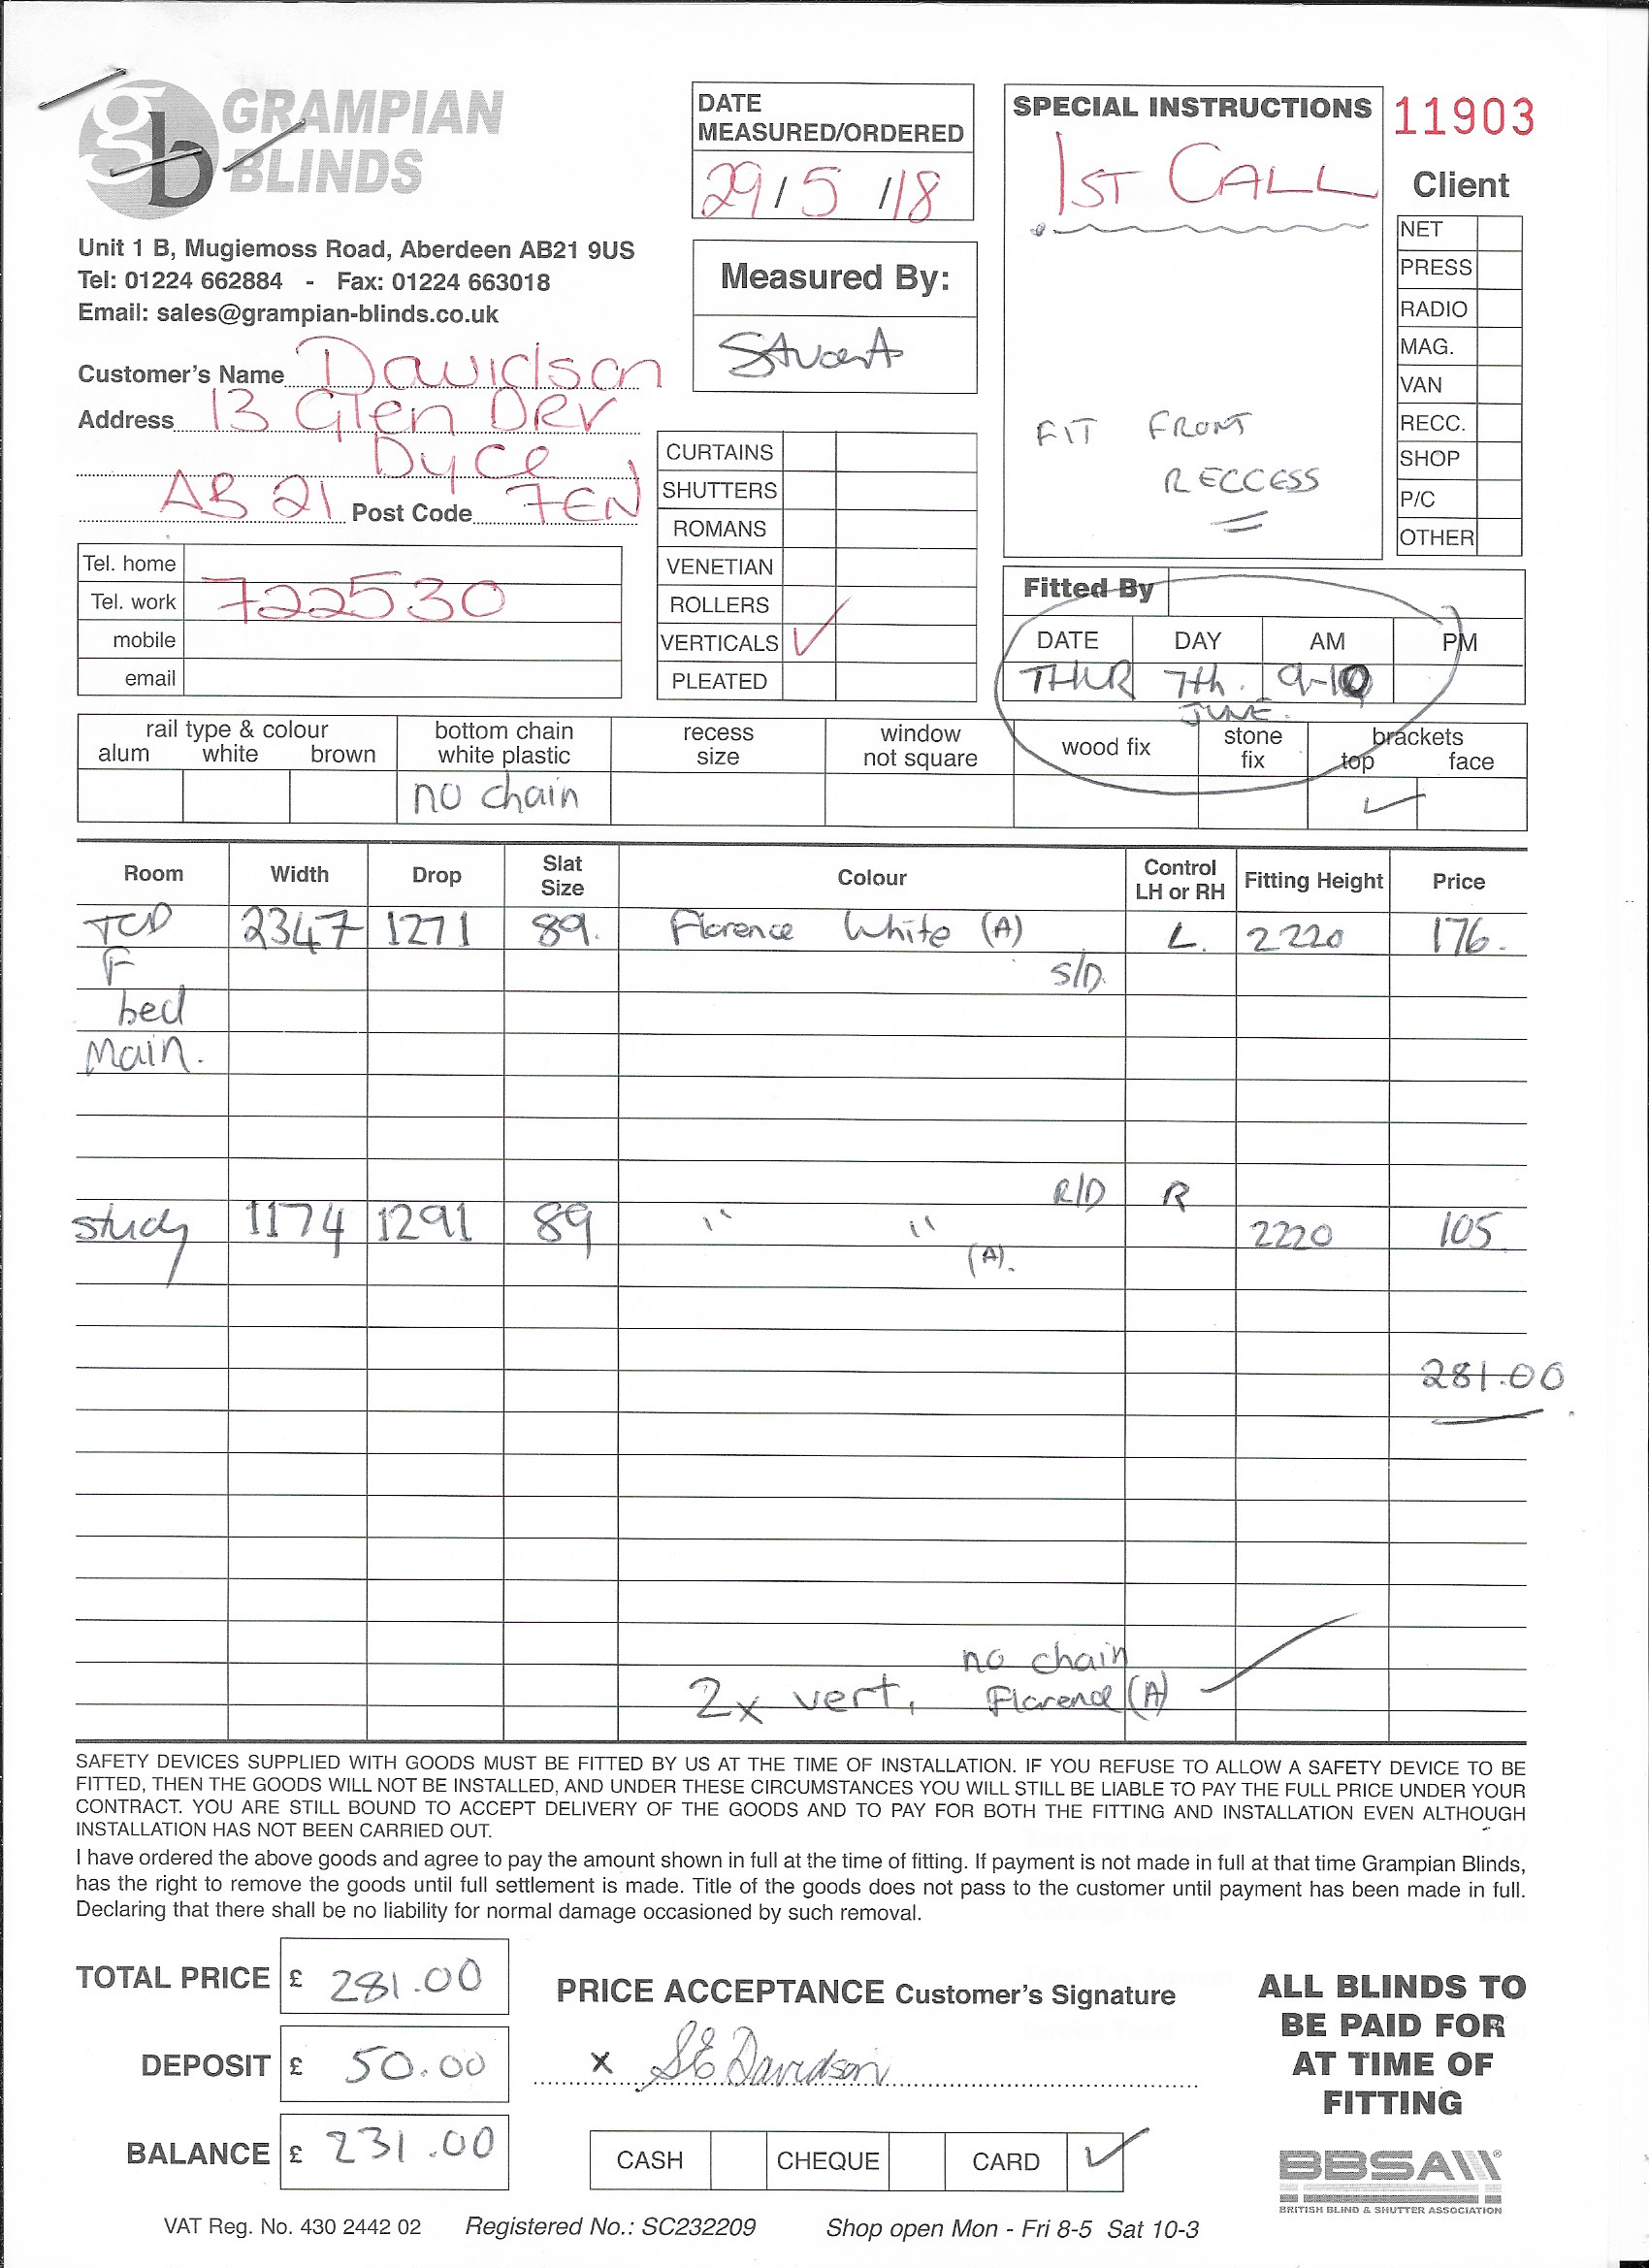 gb GRAMPIAN
BLINDS
Unit 1 B, Mugiemoss Road, Aberdeen AB21 9US
Tel: 01224 662884 - Fax: 01224 663018
Email: sales@grampian-blinds.co.uk
Customer's Name Davidson
Address 13 Glen DRV
Dyce
AB 21 Post Code 7EN
Tel. home
Tel. work 722530
mobile
email
DATE
MEASURED/ORDERED
29/5/18
Measured By:
Stuart
CURTAINS
SHUTTERS
ROMANS
VENETIAN
ROLLERS
VERTICALS ✓
PLEATED
SPECIAL INSTRUCTIONS
1ST CALL
FIT FRONT
RECCESS
11903
Client
NET
PRESS
RADIO
MAG.
VAN
RECC.
SHOP
P/C
OTHER
Fitted By
DATE DAY AM PM
THUR 7th. 9-10
JUNE.
rail type & colour bottom chain recess window wood fix stone brackets
alum white brown white plastic size not square fix top face
no chain ✓
Room Width Drop Slat Size Colour Control LH or RH Fitting Height Price
TCD 2347 1271 89. Florence White (A) L. 2220 176.
F S/D.
bed
Main.
R/D R
study 1174 1291 89 " " 2220 105
(A).
281.00
no chain
2x vert, Florence (A) ✓
SAFETY DEVICES SUPPLIED WITH GOODS MUST BE FITTED BY US AT THE TIME OF INSTALLATION. IF YOU REFUSE TO ALLOW A SAFETY DEVICE TO BE
FITTED, THEN THE GOODS WILL NOT BE INSTALLED, AND UNDER THESE CIRCUMSTANCES YOU WILL STILL BE LIABLE TO PAY THE FULL PRICE UNDER YOUR
CONTRACT. YOU ARE STILL BOUND TO ACCEPT DELIVERY OF THE GOODS AND TO PAY FOR BOTH THE FITTING AND INSTALLATION EVEN ALTHOUGH
INSTALLATION HAS NOT BEEN CARRIED OUT.
I have ordered the above goods and agree to pay the amount shown in full at the time of fitting. If payment is not made in full at that time Grampian Blinds,
has the right to remove the goods until full settlement is made. Title of the goods does not pass to the customer until payment has been made in full.
Declaring that there shall be no liability for normal damage occasioned by such removal.
TOTAL PRICE £ 281.00
DEPOSIT £ 50.00
BALANCE £ 231.00
PRICE ACCEPTANCE Customer's Signature
x SE Davidson
CASH CHEQUE CARD ✓
ALL BLINDS TO
BE PAID FOR
AT TIME OF
FITTING
BBSA
BRITISH BLIND & SHUTTER ASSOCIATION
VAT Reg. No. 430 2442 02 Registered No.: SC232209 Shop open Mon - Fri 8-5 Sat 10-3